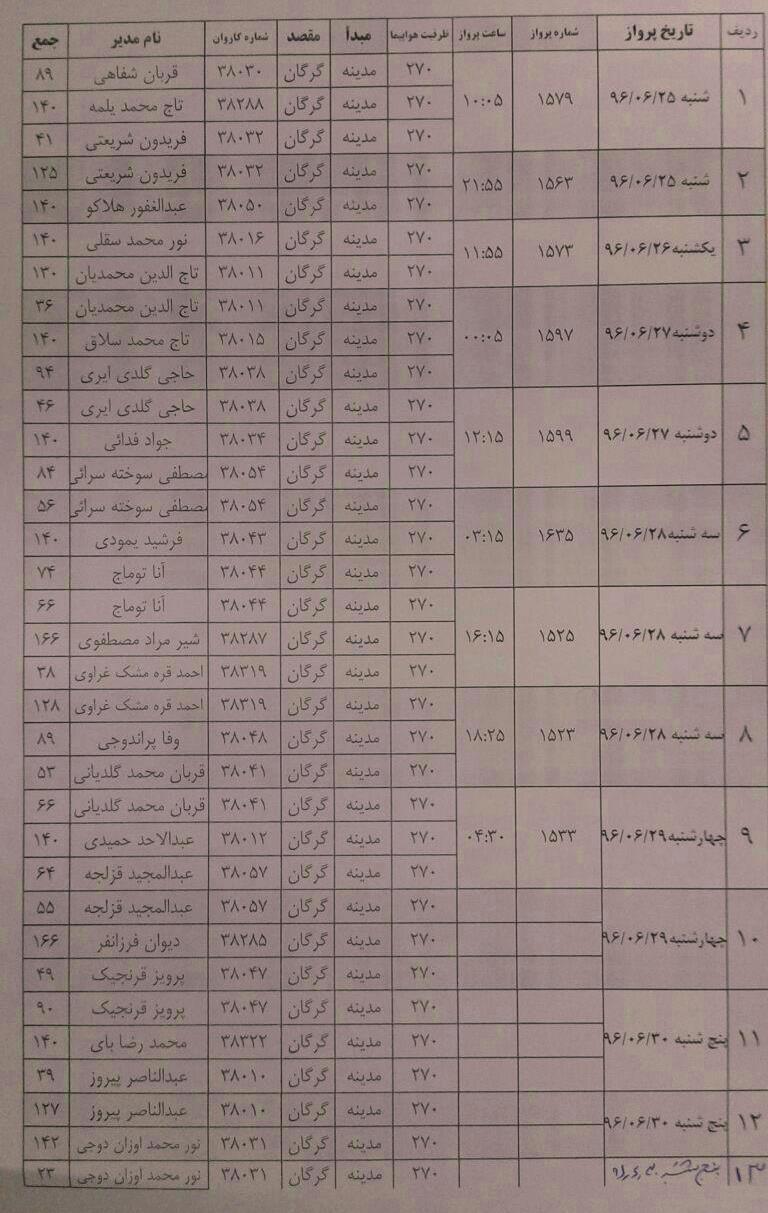 ردیف تاریخ پرواز شماره پرواز ساعت پرواز ظرفیت هواپیما مبدأ مقصد شماره کاروان نام مدیر جمع
۱ شنبه ۹۶/۰۶/۲۵ ۱۵۷۹ ۱۰:۰۵ ۲۷۰ مدینه گرگان ۳۸۰۳۰ قربان شفاهی ۸۹
۲۷۰ مدینه گرگان ۳۸۲۸۸ تاج محمد یلمه ۱۴۰
۲۷۰ مدینه گرگان ۳۸۰۳۲ فریدون شریعتی ۴۱
۲ شنبه ۹۶/۰۶/۲۵ ۱۵۶۳ ۲۱:۵۵ ۲۷۰ مدینه گرگان ۳۸۰۳۲ فریدون شریعتی ۱۲۵
۲۷۰ مدینه گرگان ۳۸۰۵۰ عبدالغفور هلاکو ۱۴۰
۳ یکشنبه ۹۶/۰۶/۲۶ ۱۵۷۳ ۱۱:۵۵ ۲۷۰ مدینه گرگان ۳۸۰۱۶ نور محمد سقلی ۱۴۰
۲۷۰ مدینه گرگان ۳۸۰۱۱ تاج الدین محمدیان ۱۳۰
۴ دوشنبه ۹۶/۰۶/۲۷ ۱۵۹۷ ۰۰:۰۵ ۲۷۰ مدینه گرگان ۳۸۰۱۱ تاج الدین محمدیان ۳۶
۲۷۰ مدینه گرگان ۳۸۰۱۵ تاج محمد سلاق ۱۴۰
۲۷۰ مدینه گرگان ۳۸۰۳۸ حاجی گلدی ایری ۹۴
۵ دوشنبه ۹۶/۰۶/۲۷ ۱۵۹۹ ۱۲:۱۵ ۲۷۰ مدینه گرگان ۳۸۰۳۸ حاجی گلدی ایری ۴۶
۲۷۰ مدینه گرگان ۳۸۰۳۴ جواد فدائی ۱۴۰
۲۷۰ مدینه گرگان ۳۸۰۵۴ مصطفی سوخته سرائی ۸۴
۶ سه شنبه ۹۶/۰۶/۲۸ ۱۶۳۵ ۰۳:۱۵ ۲۷۰ مدینه گرگان ۳۸۰۵۴ مصطفی سوخته سرائی ۵۶
۲۷۰ مدینه گرگان ۳۸۰۴۳ فرشید یمودی ۱۴۰
۲۷۰ مدینه گرگان ۳۸۰۴۴ آنا توماج ۷۴
۷ سه شنبه ۹۶/۰۶/۲۸ ۱۵۲۵ ۱۶:۱۵ ۲۷۰ مدینه گرگان ۳۸۰۴۴ آنا توماج ۶۶
۲۷۰ مدینه گرگان ۳۸۲۸۷ شیر مراد مصطفوی ۱۶۶
۲۷۰ مدینه گرگان ۳۸۳۱۹ احمد قره مشک غراوی ۳۸
۸ سه شنبه ۹۶/۰۶/۲۸ ۱۵۲۳ ۱۸:۲۵ ۲۷۰ مدینه گرگان ۳۸۳۱۹ احمد قره مشک غراوی ۱۲۸
۲۷۰ مدینه گرگان ۳۸۰۴۸ وفا پراندوجی ۸۹
۲۷۰ مدینه گرگان ۳۸۰۴۱ قربان محمد گلدیانی ۵۳
۹ چهارشنبه ۹۶/۰۶/۲۹ ۱۵۳۳ ۰۴:۳۰ ۲۷۰ مدینه گرگان ۳۸۰۴۱ قربان محمد گلدیانی ۶۶
۲۷۰ مدینه گرگان ۳۸۰۱۲ عبدالاحد حمیدی ۱۴۰
۲۷۰ مدینه گرگان ۳۸۰۵۷ عبدالمجید قزلجه ۶۴
۱۰ چهارشنبه ۹۶/۰۶/۲۹ ۲۷۰ مدینه گرگان ۳۸۰۵۷ عبدالمجید قزلجه ۵۵
۲۷۰ مدینه گرگان ۳۸۲۸۵ دیوان فرزانفر ۱۶۶
۲۷۰ مدینه گرگان ۳۸۰۴۷ پرویز قرنجیک ۴۹
۱۱ پنج شنبه ۹۶/۰۶/۳۰ ۲۷۰ مدینه گرگان ۳۸۰۴۷ پرویز قرنجیک ۹۰
۲۷۰ مدینه گرگان ۳۸۳۲۲ محمد رضا بای ۱۴۰
۲۷۰ مدینه گرگان ۳۸۰۱۰ عبدالناصر پیروز ۳۹
۱۲ پنج شنبه ۹۶/۰۶/۳۰ ۲۷۰ مدینه گرگان ۳۸۰۱۰ عبدالناصر پیروز ۱۲۷
۲۷۰ مدینه گرگان ۳۸۰۳۱ نور محمد اوزان دوجی ۱۴۲
۱۳ پنج شنبه ۲۷۰ مدینه گرگان ۳۸۰۳۱ نور محمد اوزان دوجی ۲۳